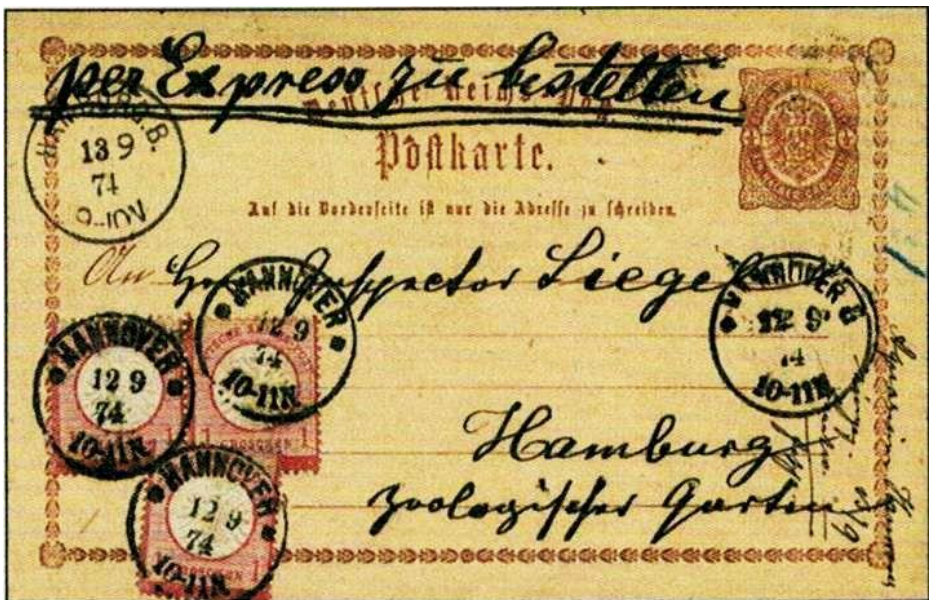 per Express zu bestellen
Deutsche Reichs-Post
Postkarte.
Auf die Vorderseite ist nur die Adresse zu schreiben.
13 9
74
An Herrn Inspector Siegel
HANNOVER
12 9
74
10-11N
HANNOVER
12 9
74
10-11N
1 GROSCHEN 1
HANNOVER
12 9
74
10-11N
HANNOVER
12 9
74
10-11N
GROSCHEN 1
Hamburg
Zoologischer Garten